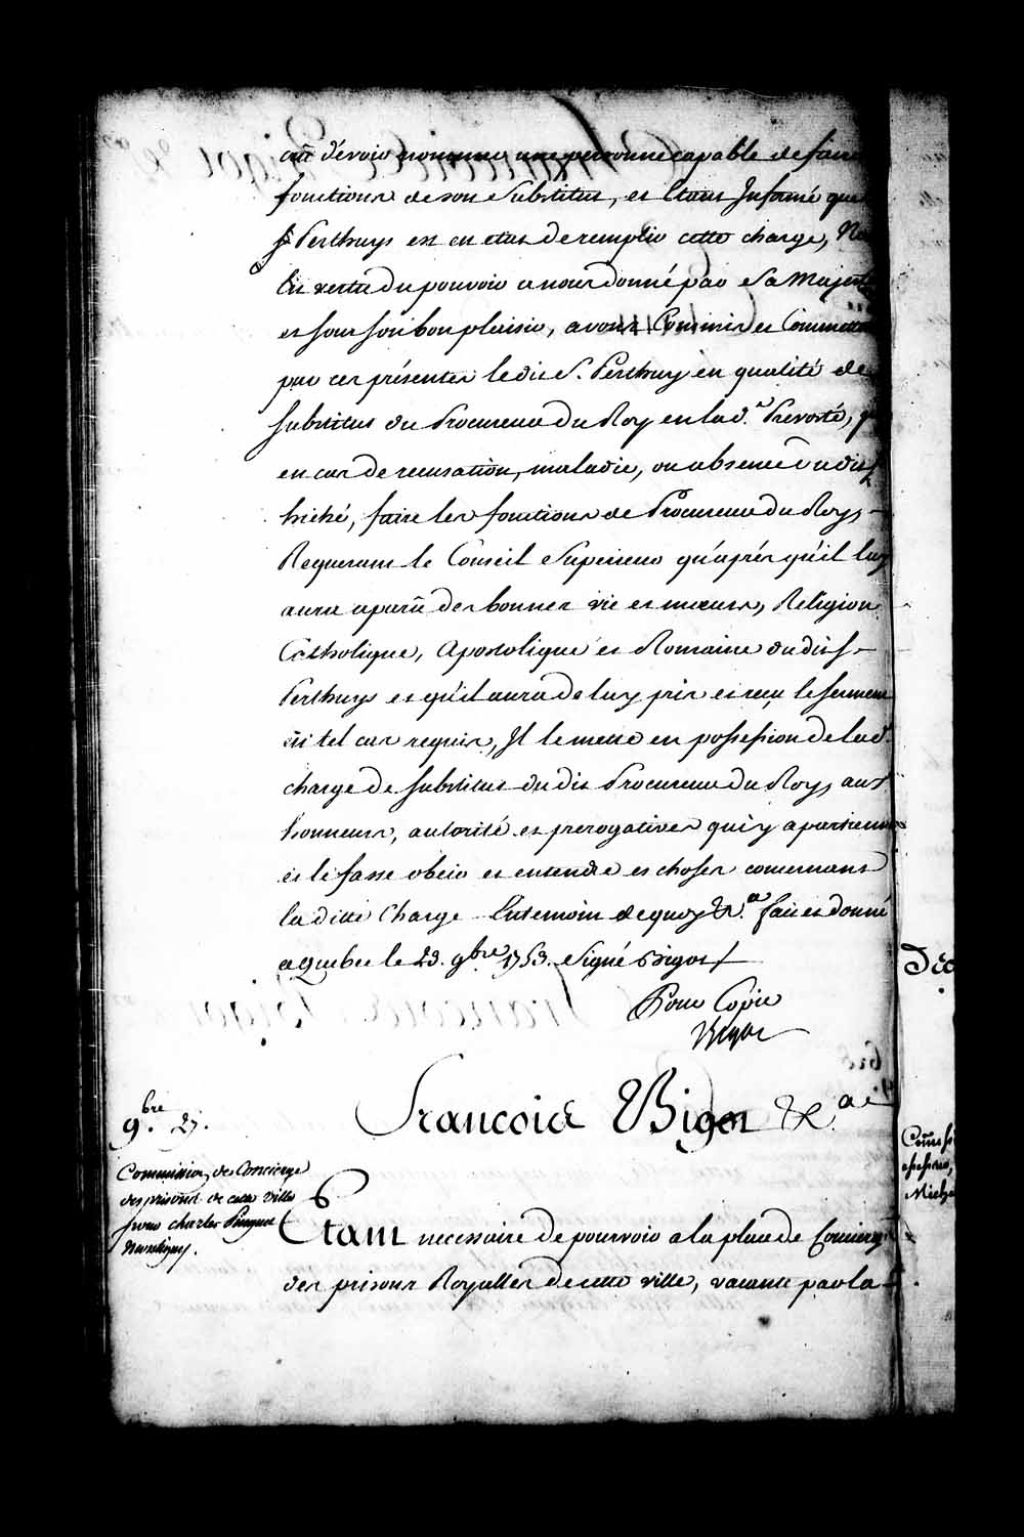 crû dévoir nommer une personne capable de faire
fonctions de son Substitut, et Etant Informé que
Perthuys est en etat de remplir cette charge,
En vertu du pouvoir a nous donné par Sa Majesté
et sous son bon plaisir, avons Commis et Commettons
par ces présentes ledit S. Perthuys en qualité de
Substitut du Procureur du Roy en lad. Prevosté,
en cas de recusation, maladie, ou absence dudit
hiché, faire les fonctions de Procureur du Roy,
Requerant le Conseil Superieur qu'après qu'il luy
aura aparû des bonnes vie et mœurs, Religion
Catholique, Apostolique et Romaine dudit S.
Perthuys et qu'il aura de luy pris et reçu le serment
en tel cas requis, Il le mette en possession de lad.
charge de Substitut du dit Procureur du Roy, aux
honneurs, autorité et prerogatives qui y apartiennent
et le fasse obeir et entendre es choses concernant
la dite Charge En temoin de quoy &.a fait et donné
a Quebec le 23. 9bre 1753. Signé Bigot
Pour Copie
Bigot
François Bigot &.a
9.bre 27.
Commission de Concierge
des prisons de cette ville
pour charles
Etant necessaire de pourvoir a la place de Concierge
des prisons Royalles de cette ville, vacante par la